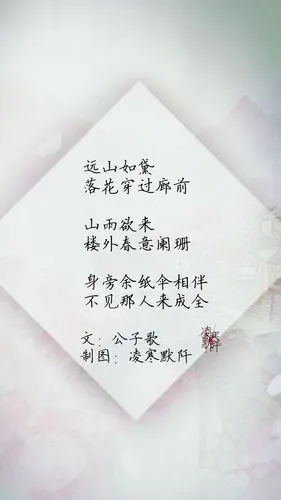 远山如黛
落花穿过廊前
山雨欲来
楼外春意阑珊
身旁余纸伞相伴
不见那人来成全
文：公子歌
制图：凌寒默阡